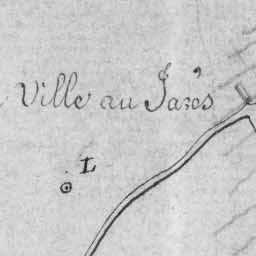 Ville au Jarès
L